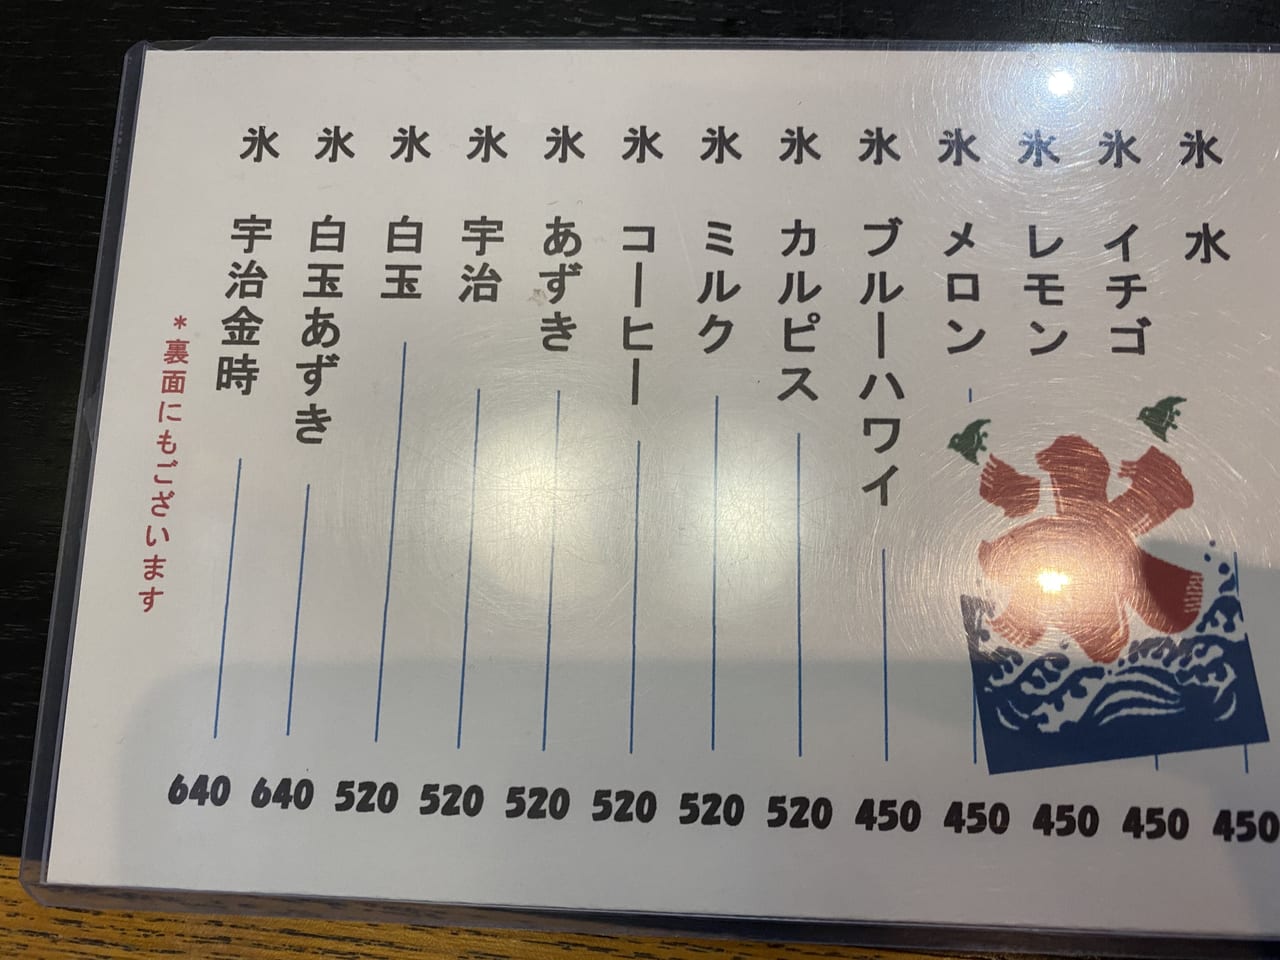 氷 水 450
氷 イチゴ 450
氷 レモン 450
氷 メロン 450
氷 ブルーハワイ 450
氷 カルピス 520
氷 ミルク 520
氷 コーヒー 520
氷 あずき 520
氷 宇治 520
氷 白玉 520
氷 白玉あずき 640
氷 宇治金時 640
*裏面にもございます
氷